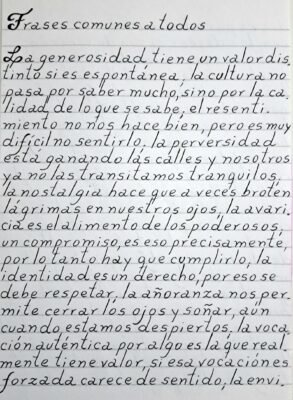 Frases comunes a todos
La generosidad tiene un valor dis.
tinto si es espontánea, la cultura no
pasa por saber mucho, sino por la ca.
lidad de lo que se sabe, el resenti.
miento no nos hace bien, pero es muy
difícil no sentirlo, la perversidad
está ganando las calles y nosotros
ya no las transitamos tranquilos,
la nostalgia hace que a veces broten
lágrimas en nuestros ojos, la avari.
cia es el alimento de los poderosos,
un compromiso, es eso precisamente,
por lo tanto hay que cumplirlo, la
identidad es un derecho, por eso se
debe respetar, la añoranza nos per.
mite cerrar los ojos y soñar, aún
cuando estamos despiertos, la voca
ción auténtica por algo es la que real.
mente tiene valor, si esa vocación es
forzada carece de sentido, la envi.